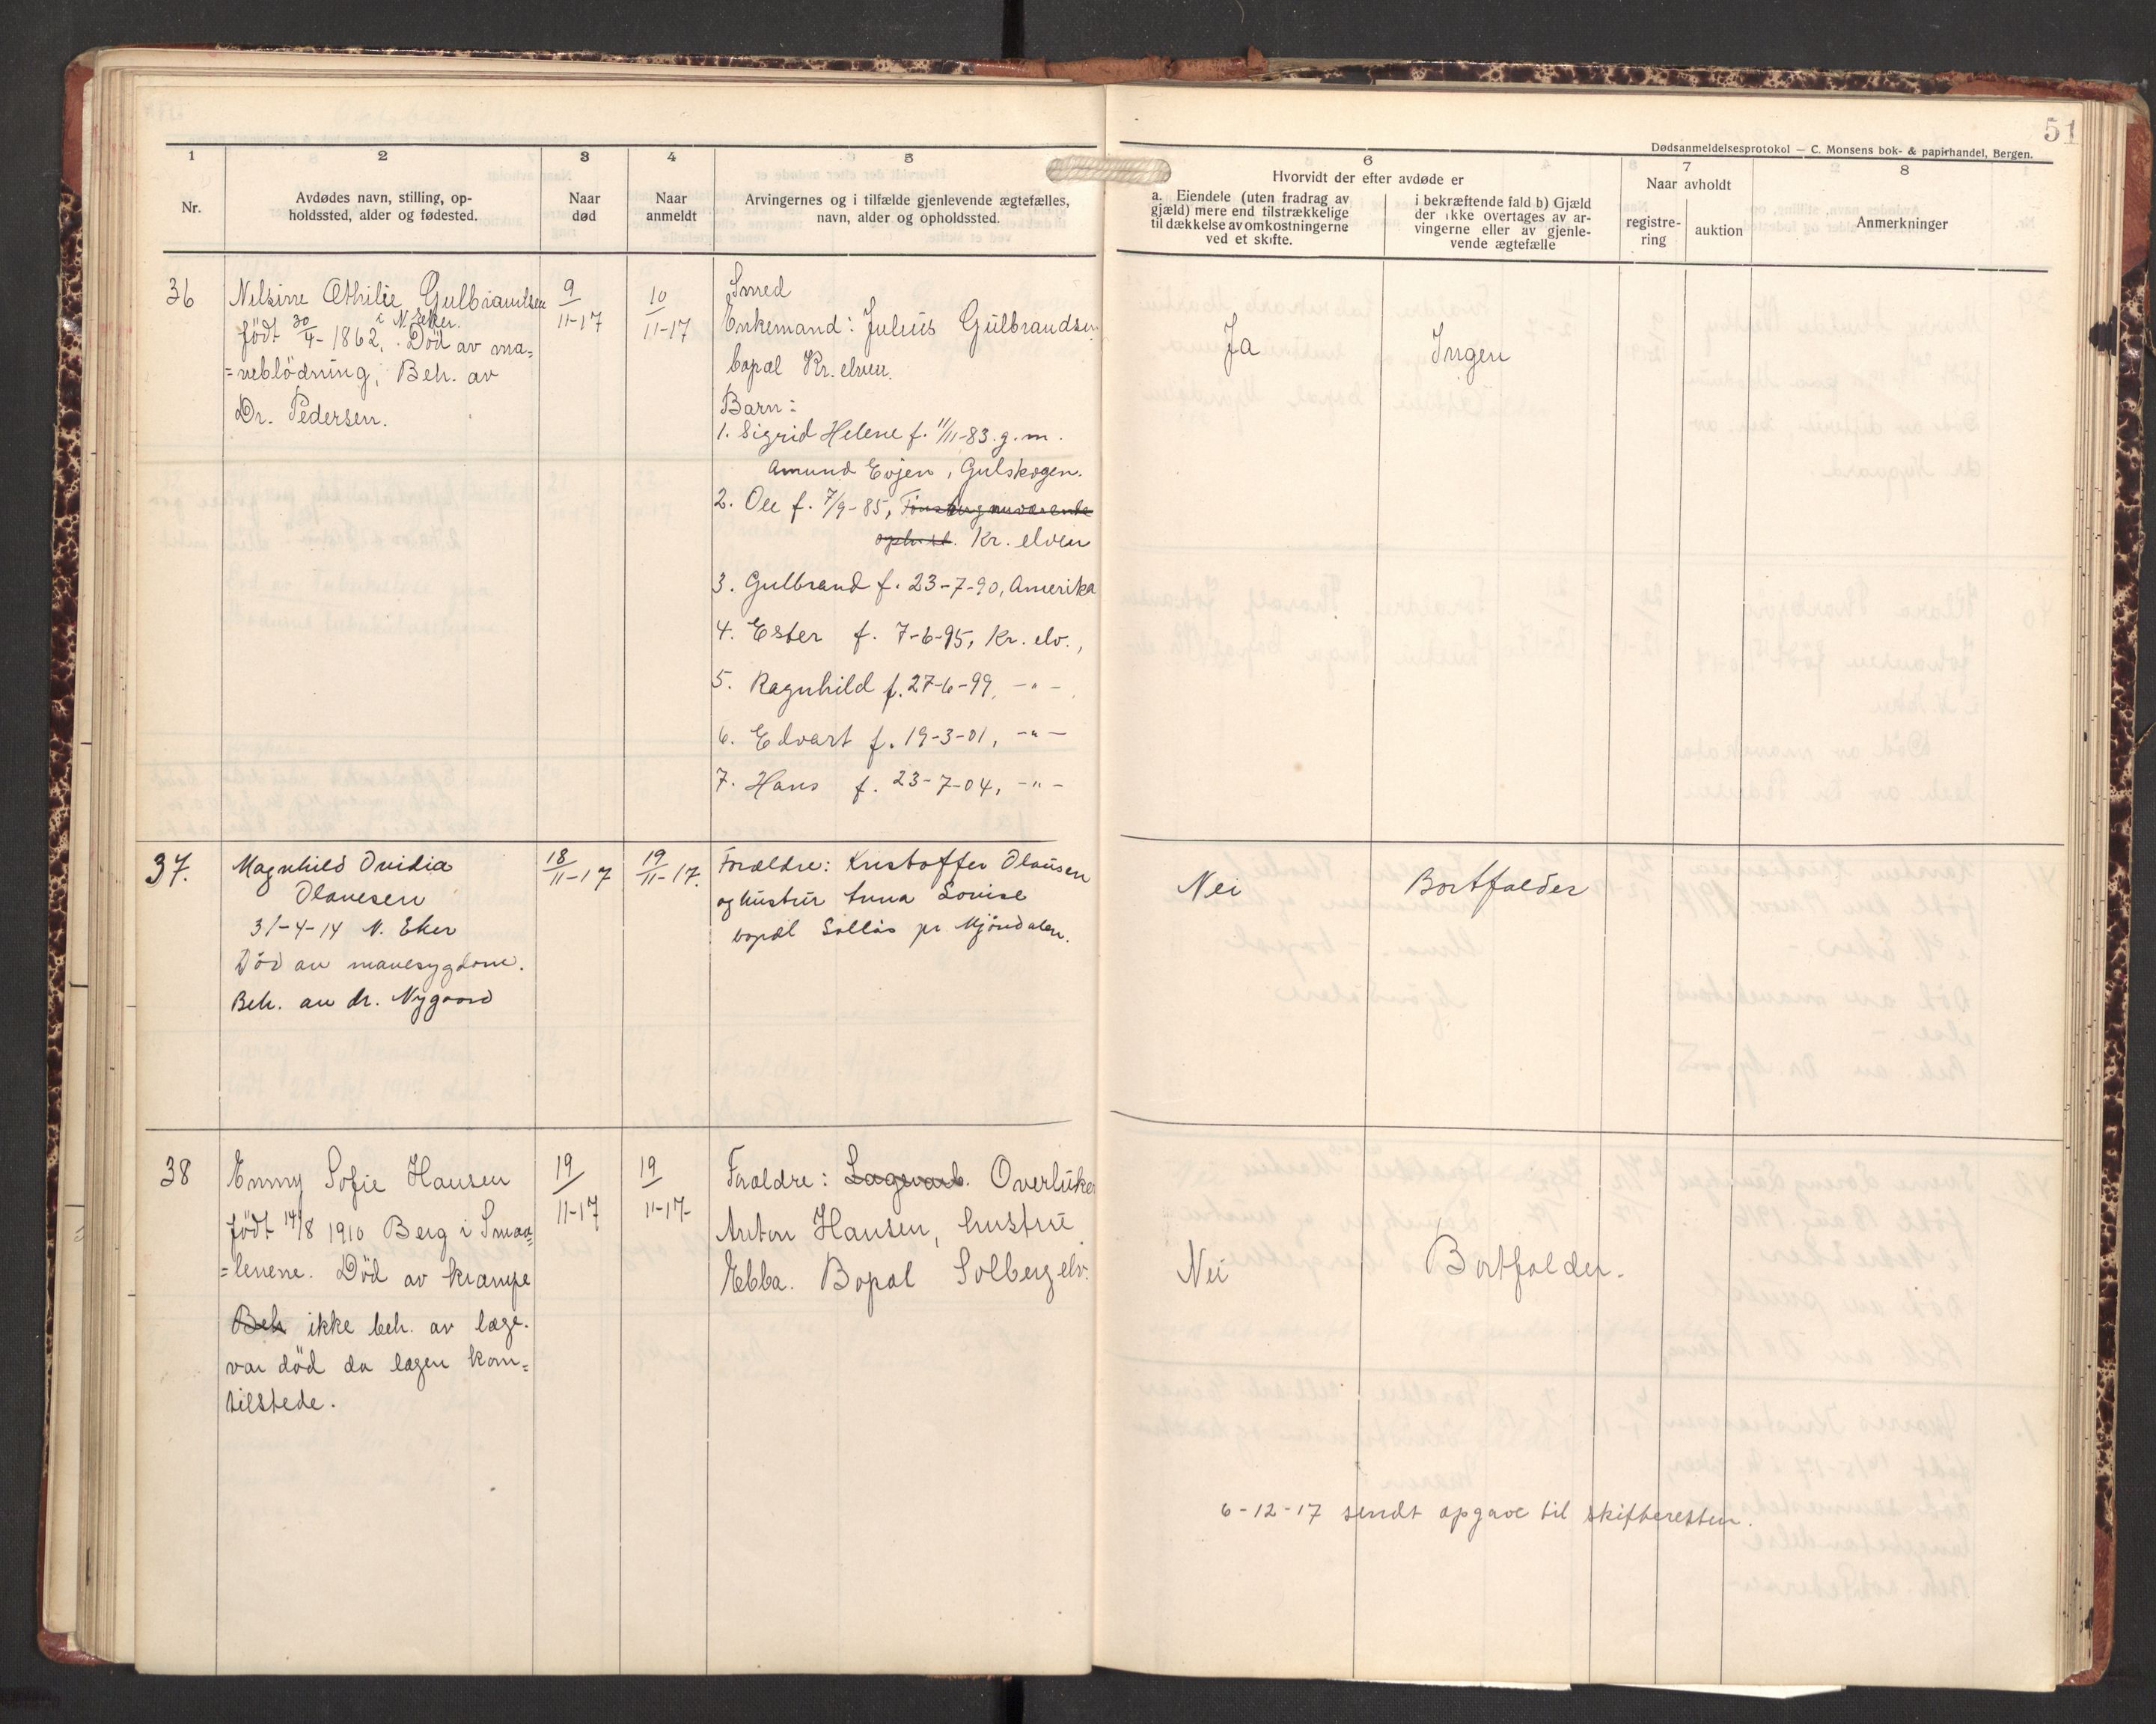 51
Dødsanmeldelsesprotokol — C. Monsens bok- & papirhandel, Bergen.
1 2 3 4 5 6 7 8
Nr.
Avdødes navn, stilling, op-
holdssted, alder og fødested.
Naar
død
Naar
anmeldt
Arvingernes og i tilfælde gjenlevende ægtefælles,
navn, alder og opholdssted.
Hvorvidt der efter avdøde er
a. Eiendele (uten fradrag av
gjæld) mere end tilstrækkelige
til dækkelse av omkostningerne
ved et skifte.
i bekræftende fald b) Gjæld
der ikke overtages av ar-
vingerne eller av gjenle-
vende ægtefælle
Naar avholdt
registre-
ring
auktion
Anmerkninger
36
Nelsine Othilie Gulbrandsen
i N. Eker.
født 30/4-1862. Død av ma=
=veblödning, Beh. av
Dr. Pedersen.
9/11-17
10/11-17
Smed
Enkemand: Julius Gulbrandsen
bopæl Kr. elven.
Barn:
1. Sigrid Helene f. 11/11-83. g. m.
Amund Evjen, Gulskogen.
2. Ole f. 7/9-85, Tønsberg nuværende
opholst. Kr. elven
3. Gulbrand f. 23-7-90, Amerika
4. Ester f. 7-6-95, Kr. elv.,
5. Ragnhild f. 27-6-99, -"-
6. Edvart f. 19-3-01, -"-
7. Hans f. 23-7-04, -"-
Ja
Ingen
37.
Magnhild Ovidia
Olausen
31-4-14 N. Eker
Död av mavesygdom.
Beh. av dr. Nygaard
18/11-17
19/11-17.
Forældre: Kristoffer Olausen
og hustru Anna Louise
bopæl Sollås pr Mjöndalen.
Nei
Bortfalder
38
Emmy Sofie Hansen
født 14/8 1910 Berg i Smaa=
=lenene. Död av krampe
Beh ikke beh. av læge.
var död da lægen kom=
tilstede.
19/11-17
19/11-17-
Forældre: Lagerarb. Overluker
Anton Hansen, hustru
Ebba. Bopæl Solbergelv.
Nei
Bortfalder.
6-12-17 sendt opgave til skifteretten.